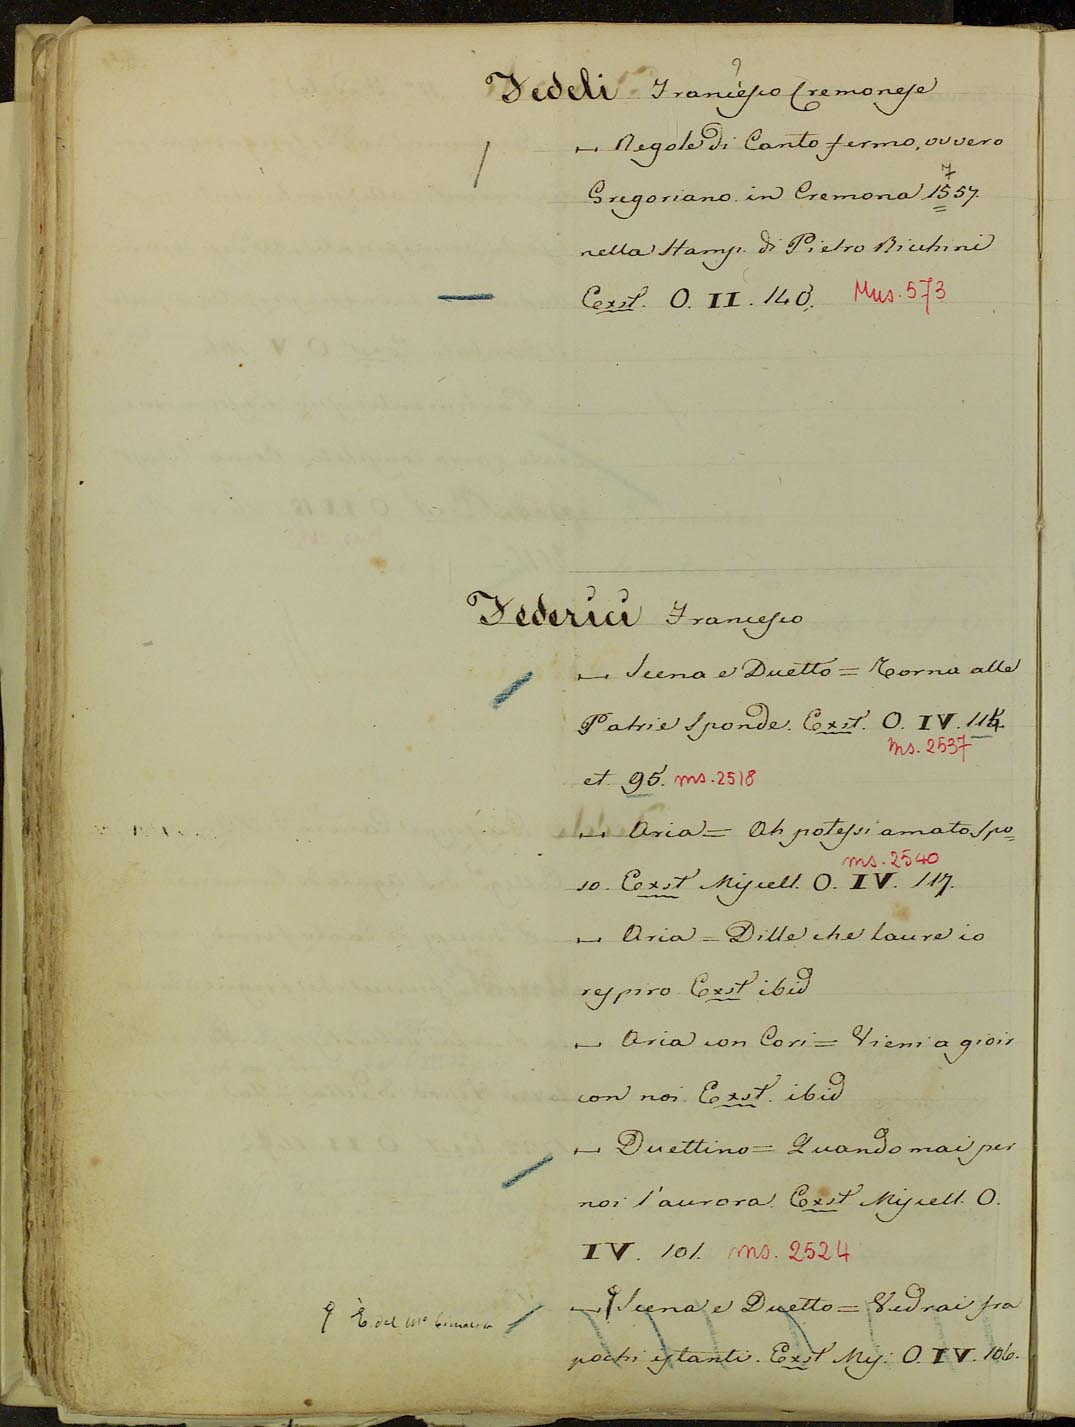 Fedeli Francesco Cremonese
– Regole di Canto fermo, ovvero
7
Gregoriano in Cremona 1557.
nella Stamp. di Pietro Richini
Exst. O. II. 140. Mus. 573
Federici Francesco
– Scena e Duetto = Torna alle
Patrie Sponde. Exst. O. IV. 114.
ms. 2537
et 95. ms. 2518
– Aria = Ah potessi amato Spo=
ms. 2540
so. Exst Miscell. O. IV. 117.
– Aria = Dille che l'aure io
respiro Exst ibid
– Aria con Cori = Vieni a gioir
con noi. Exst. ibid
– Duettino = Quando mai per
noi l'aurora. Exst Miscell. O.
IV. 101. ms. 2524
– Scena e Duetto = Vedrai fra
È del Mo Cimarosa
pochi istanti. Exst Mis: O. IV. 106.